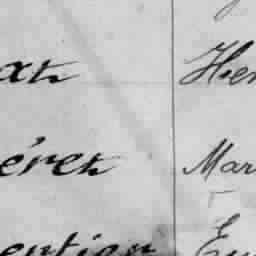 at Hen
éret Mar
ention Eu